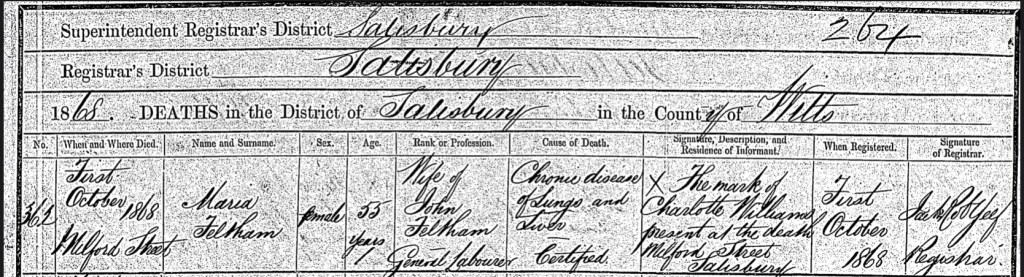 Superintendent Registrar's District Salisbury 264
Registrar's District Salisbury
1868. DEATHS in the District of Salisbury in the County of Wilts
No. When and Where Died. Name and Surname. Sex. Age. Rank or Profession. Cause of Death. Signature, Description, and Residence of Informant. When Registered. Signature of Registrar.
362
First
October
1868
Milford Street
Maria
Feltham
female
55
years
Wife of
John
Feltham
General labourer
Chronic disease
of Lungs and
Liver
Certified.
X The mark of
Charlotte Williams
present at the death
Milford Street
Salisbury
First
October
1868
Registrar.